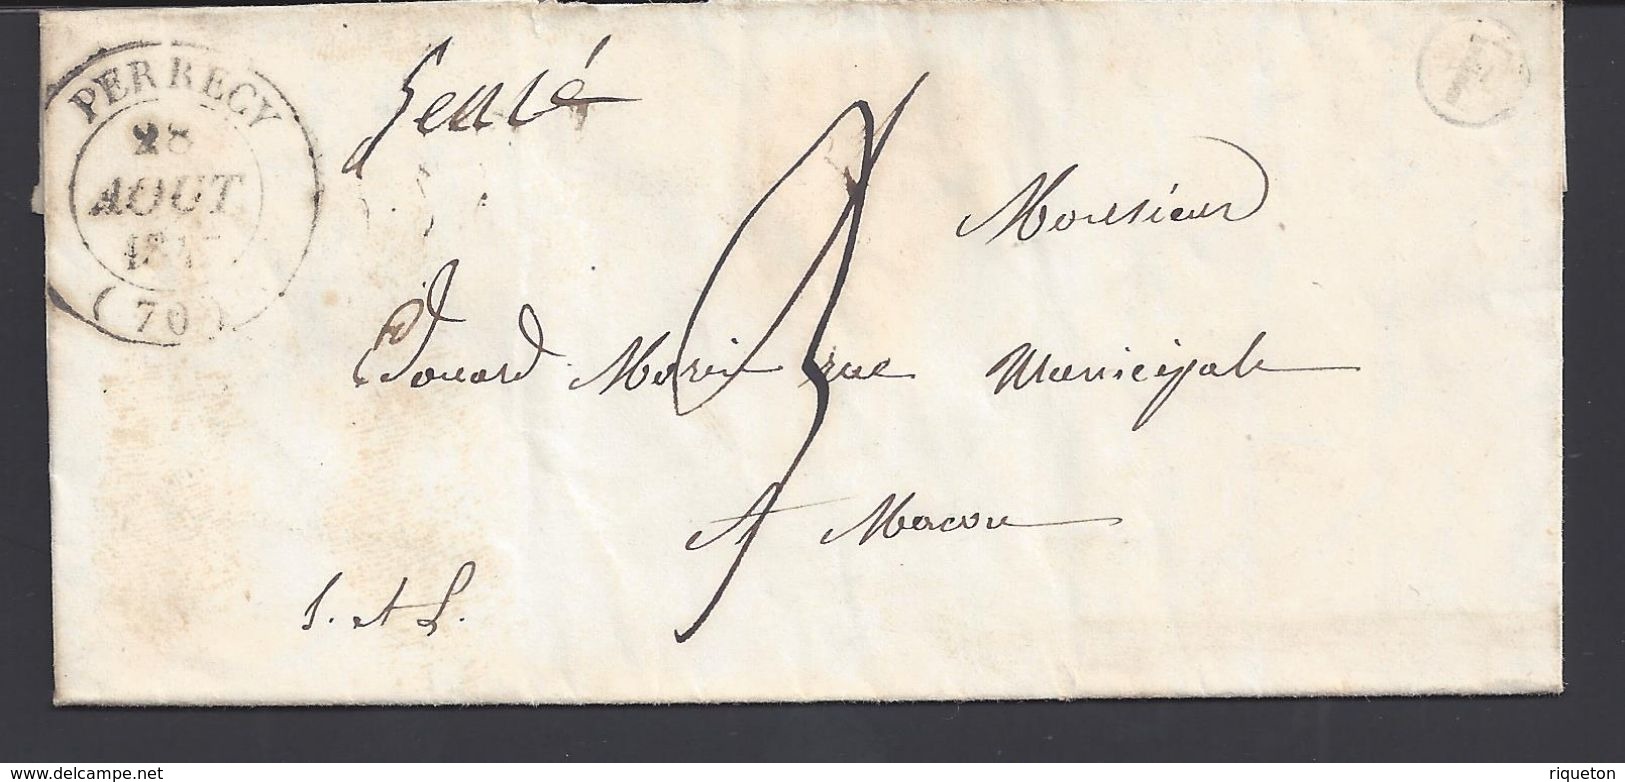 PERRECY
28
AOUT
(70)
Genlé
Monsieur
Edouard Morin rue Municipale
A Macon
S. et L.
3
www.delcampe.net
riqueton